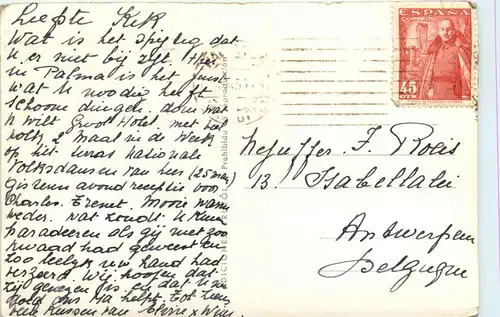 Liefste Kek
Wat is het spijtig dat
U er niet bij zijt. Hier
in Palma is het juist
wat U noodig heeft
Schoone dingen, doen wat
U wilt Groot Hotel, met heel
volk 2 maal in de Week
op het terras Nationale
Volksdansen van hier (25 man)
gisteren avond receptie voor
Charles. Mooie warm
weder. Wat zoudt U kunnen
paradeeren als gij niet zoo
kwaad had geweest en
zoo leelijk uw hand had
bezeerd. Wij hoopen dat
zij genezen is en dat U
goed ons Ma helpt. Tot
kussen van Pierre x Wim
ESPAÑA
CORREOS
45
CTS
Mejuffer J. Roeis
13. Isabellalei
Antwerpen
Belgique